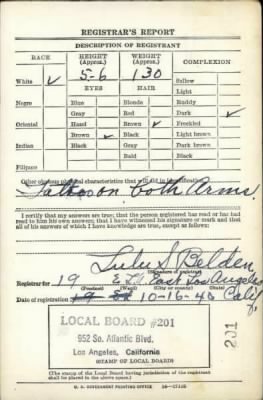 REGISTRAR'S REPORT
DESCRIPTION OF REGISTRANT
RACE HEIGHT (Approx.) WEIGHT (Approx.) COMPLEXION
White ✓ 5-6 130 Sallow
EYES HAIR Light
Negro Blue Blonde Ruddy
Gray Red Dark ✓
Oriental Hazel Brown ✓ Freckled
Brown ✓ Black Light brown
Indian Black Gray Dark brown
Bald Black
Filipino
Other obvious physical characteristics that will aid in identification
Tattoos on both Arms.
I certify that my answers are true; that the person registered has read or has had
read to him his own answers; that I have witnessed his signature or mark and that
all of his answers of which I have knowledge are true, except as follows:
Lulu S. Belden
(Signature of registrar)
Registrar for 19 E. L.A. East Los Angeles
(Precinct) (Ward) (City or county) (State)
Date of registration 10-16-40 Calif.
LOCAL BOARD #201
952 So. Atlantic Blvd.
Los Angeles, California
(STAMP OF LOCAL BOARD)
201
(The stamp of the Local Board having jurisdiction of the registrant
shall be placed in the above space.)
U. S. GOVERNMENT PRINTING OFFICE 16-17105